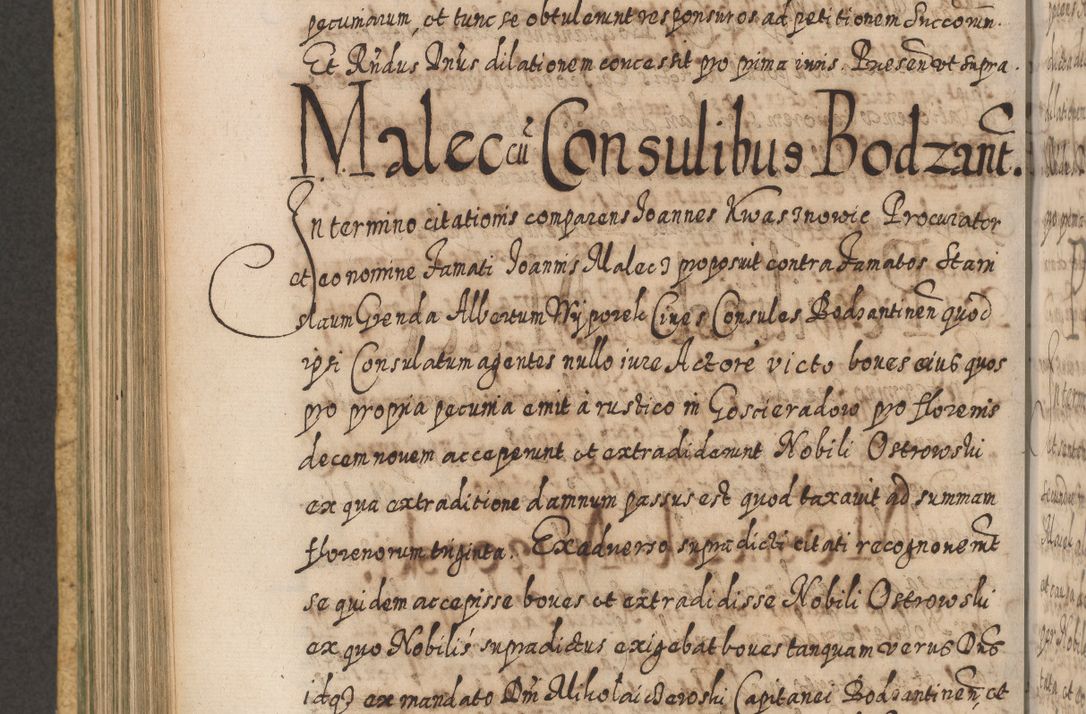 pecuniarum, et tunc se obtulerunt responsuros ad petitionem Succorum.
Et Rndus Dnus dilationem concessit pro prima iuris. Presen ut supra.
Malec cu Consulibus Bodzant.
In termino citationis comparens Joannes Kwasznowic Procurator
et eo nomine Famati Joannis Malec proposuit contra Famatos Stani
slaum Grenda Albertum Wyporek Cives Consules Bodzantinen quod
ipsi Consulatum agentes nullo iure Actore victo boves eius quos
pro propria pecunia emit a rustico in Goscieradow pro florenis
decem novem acceperunt et extradiderunt Nobili Ostrowski
ex qua extraditione damnum passus est quod taxavit ad summam
florenorum triginta. Ex adverso supradicti citati recognoverunt
se quidem accepisse boves et extradidisse Nobili Ostrowski
ex quo Nobilis supradictus exigebat boves tanquam verus Dns
idq ex mandato Dni Mikołai Capitanei Bodzantinen, et